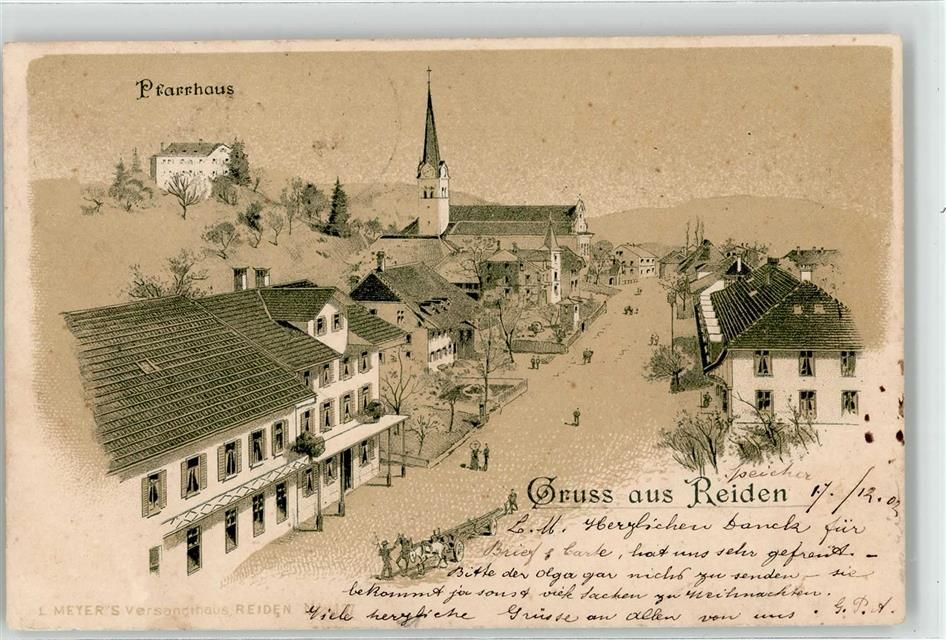 Pfarrhaus
Gruss aus Reiden
Speicher
17./12. 02
L. M. Herzlichen Danck für
Brief & Carte, hat uns sehr gefreut. –
Bitte der Olga gar nichts zu senden – sie
bekommt ja sonst viele Sachen zu Weihnachten.
Viele herzliche Grüsse an allen von uns. G. P. A.
L. MEYER'S Versandthaus, REIDEN